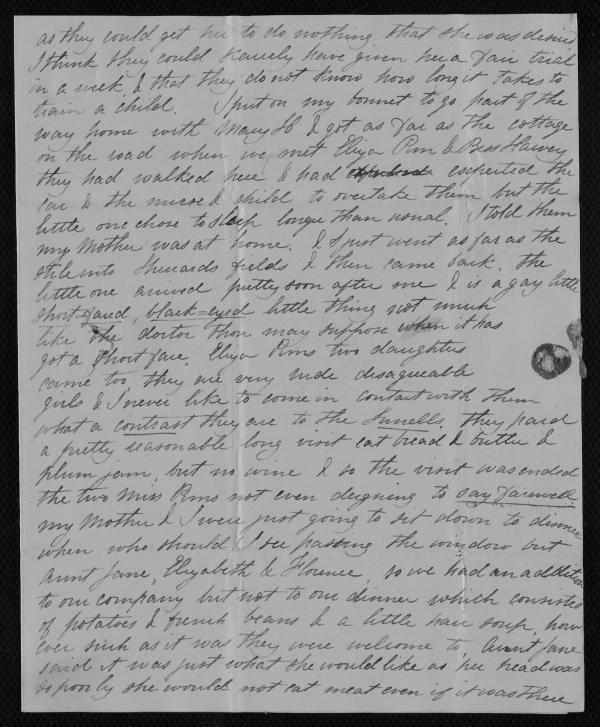 as they could get her to do nothing that she was desired
I think they could scarcely have given her a fair trial
in a week, & that they do not know how long it takes to
train a child. I put on my bonnet to go part of the
way home with Mary H & got as far as the cottage
on the road when we met Eliza Pim & Bess Harvey
they had walked here & had expected the
car & the nurse & child to overtake them but the
little one chose to sleep longer than usual. I told them
my Mother was at home. & I just went as far as the
stile into fields & then came back. the
little one arrived pretty soon after me & is a gay little
short-faced, black=eyed little thing not much
like the doctor thou may suppose when it has
got a short face. Eliza Pims two daughters
came too, they are very rude disagreeable
girls & I never like to come in contact with them
what a contrast they are to the they paid
a pretty reasonable long visit eat bread & butter &
plum jam, but no wine & so the visit was ended
the two Miss Pims not even deigning to say farewell
my Mother & I were just going to sit down to dinner
when who should I see passing the window but
Aunt Jane, Elizabeth & Florence, so we had an addition
to our company but not to our dinner which consisted
of potatoes & french beans & a little hair soup, how
ever such as it was they were welcome to, Aunt Jane
said it was just what she would like as her head was
so poorly she would not eat meat even if it was there